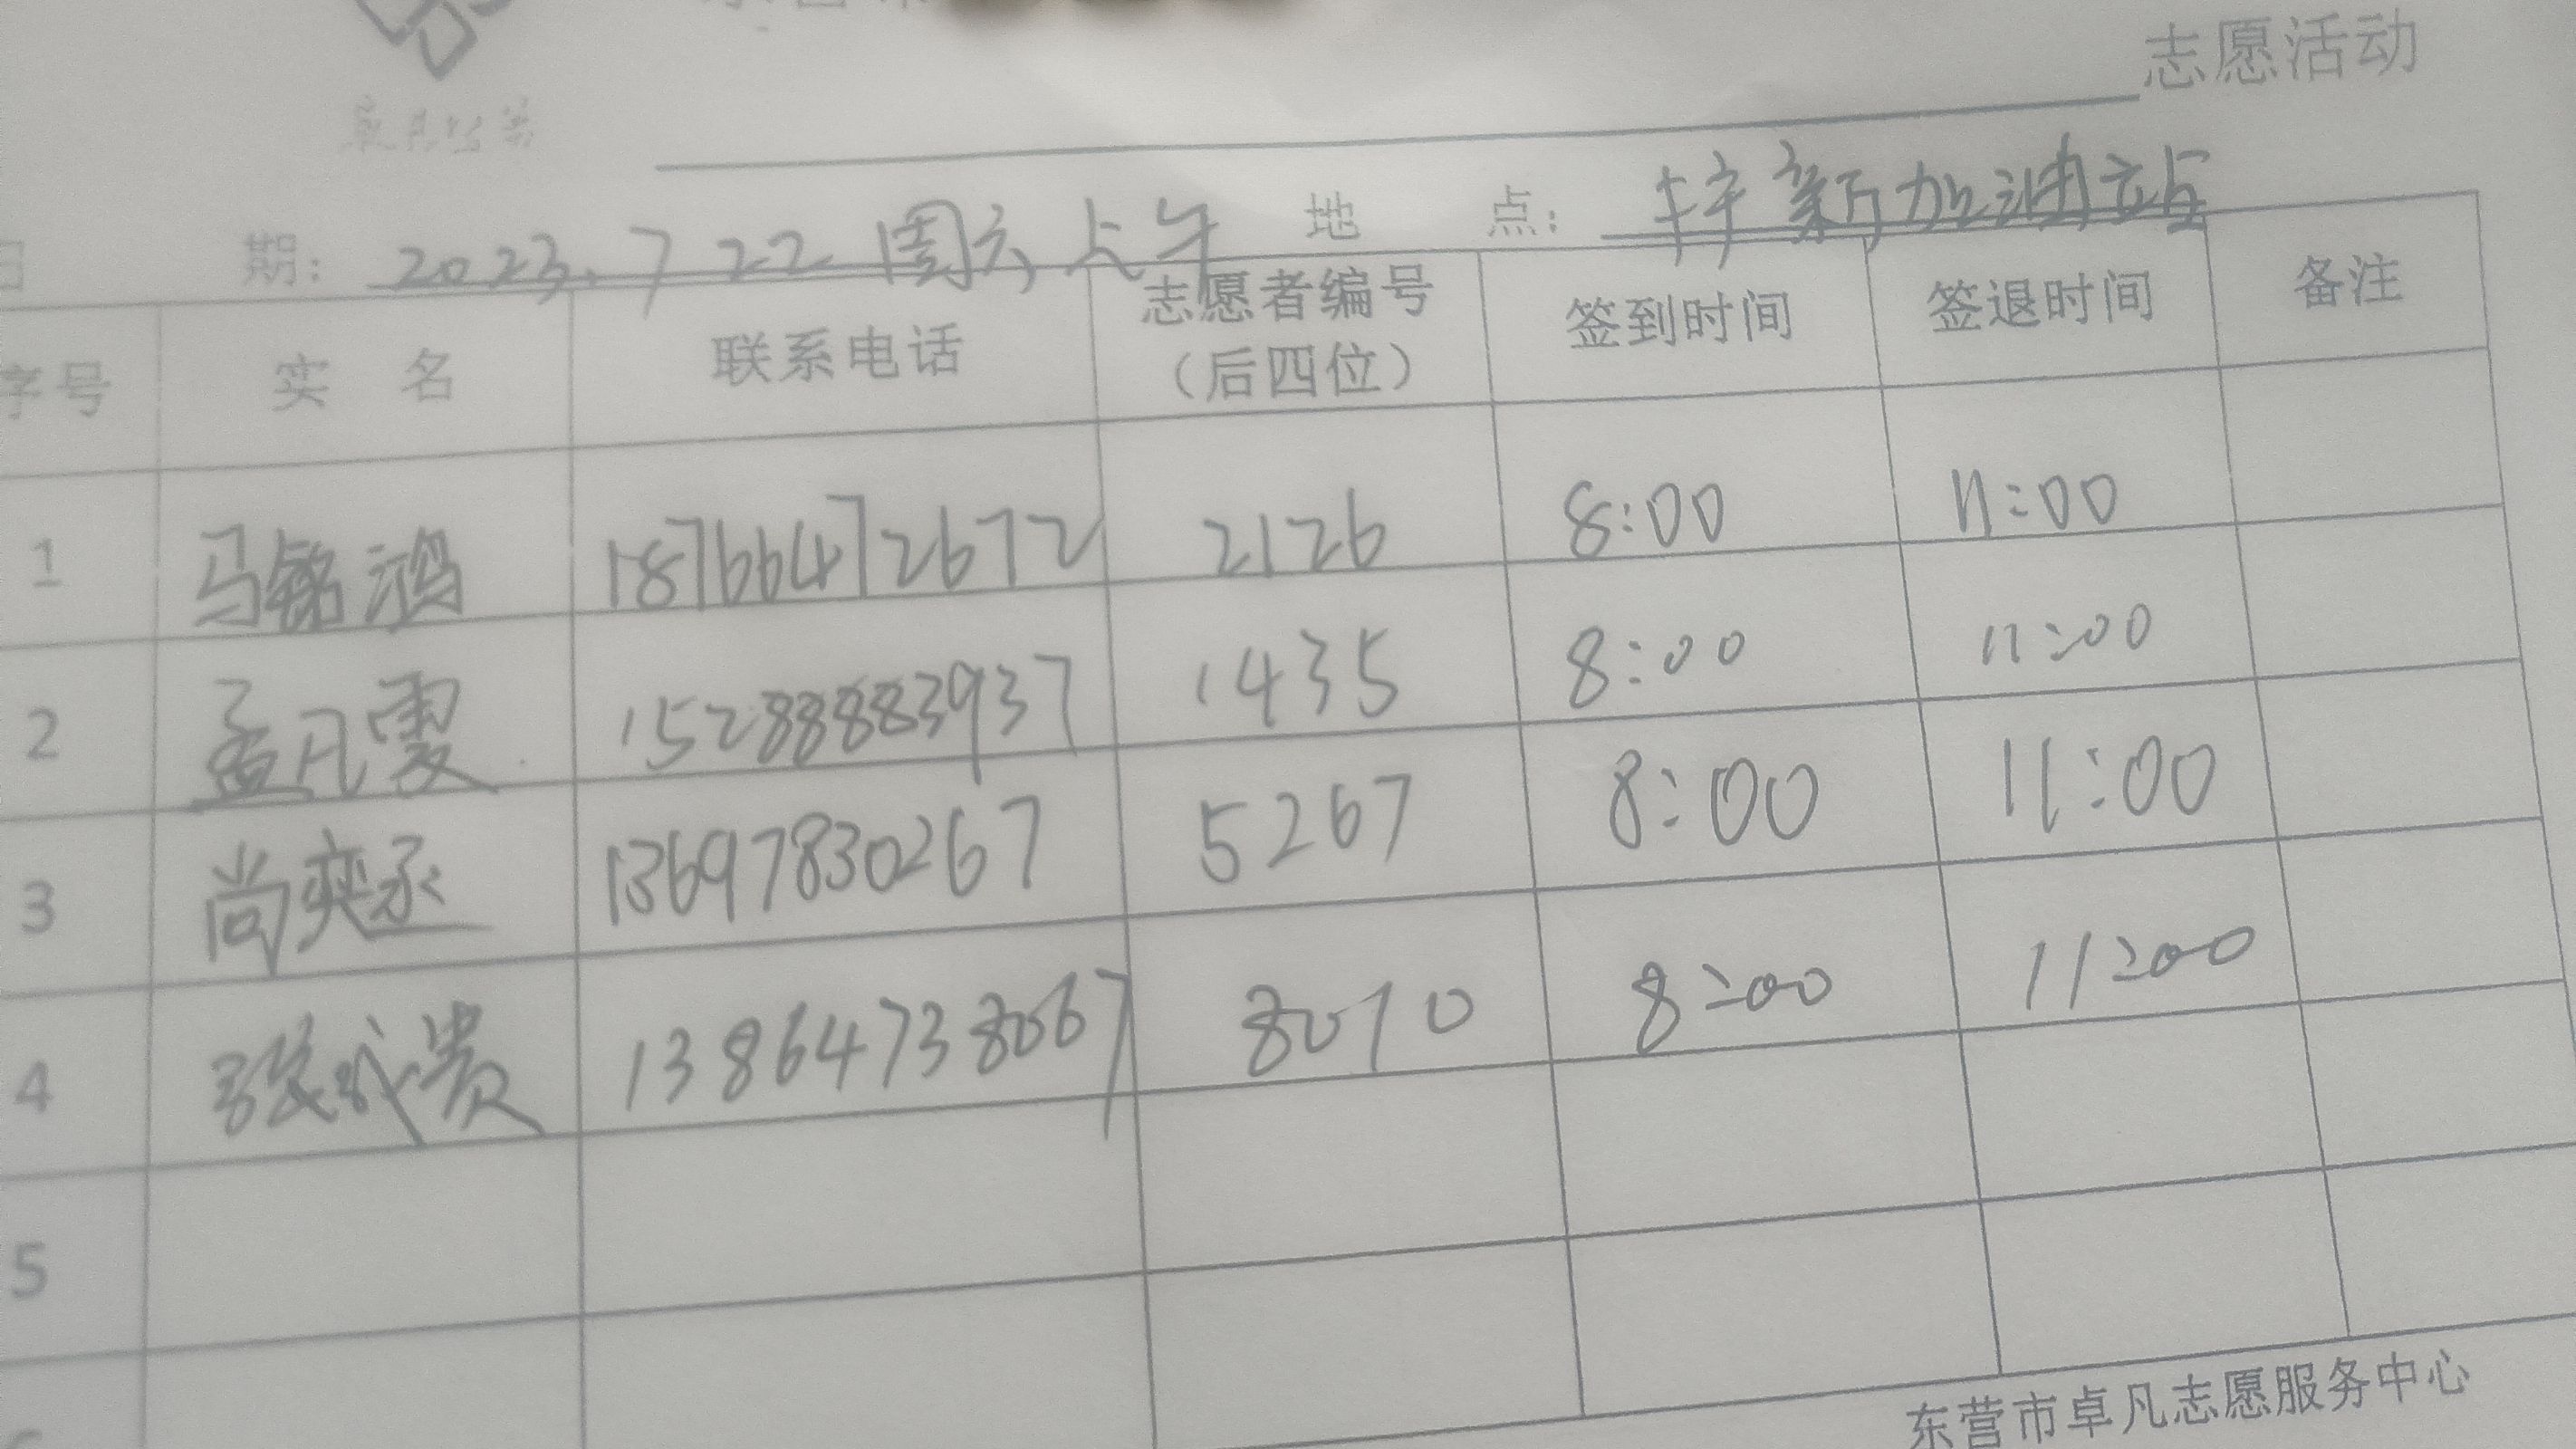 志愿活动
期： 2023.7 22 周六上午 地 点： 梓新加油站
序号 实 名 联系电话 志愿者编号（后四位） 签到时间 签退时间 备注
1 马铭鸿 18766472672 2126 8:00 11:00
2 孟凡雯 15288883937 1435 8:00 11:00
3 尚奕丞 13697830267 5267 8:00 11:00
4 张成贵 13864738067 8010 8:00 11:00
5
东营市卓凡志愿服务中心